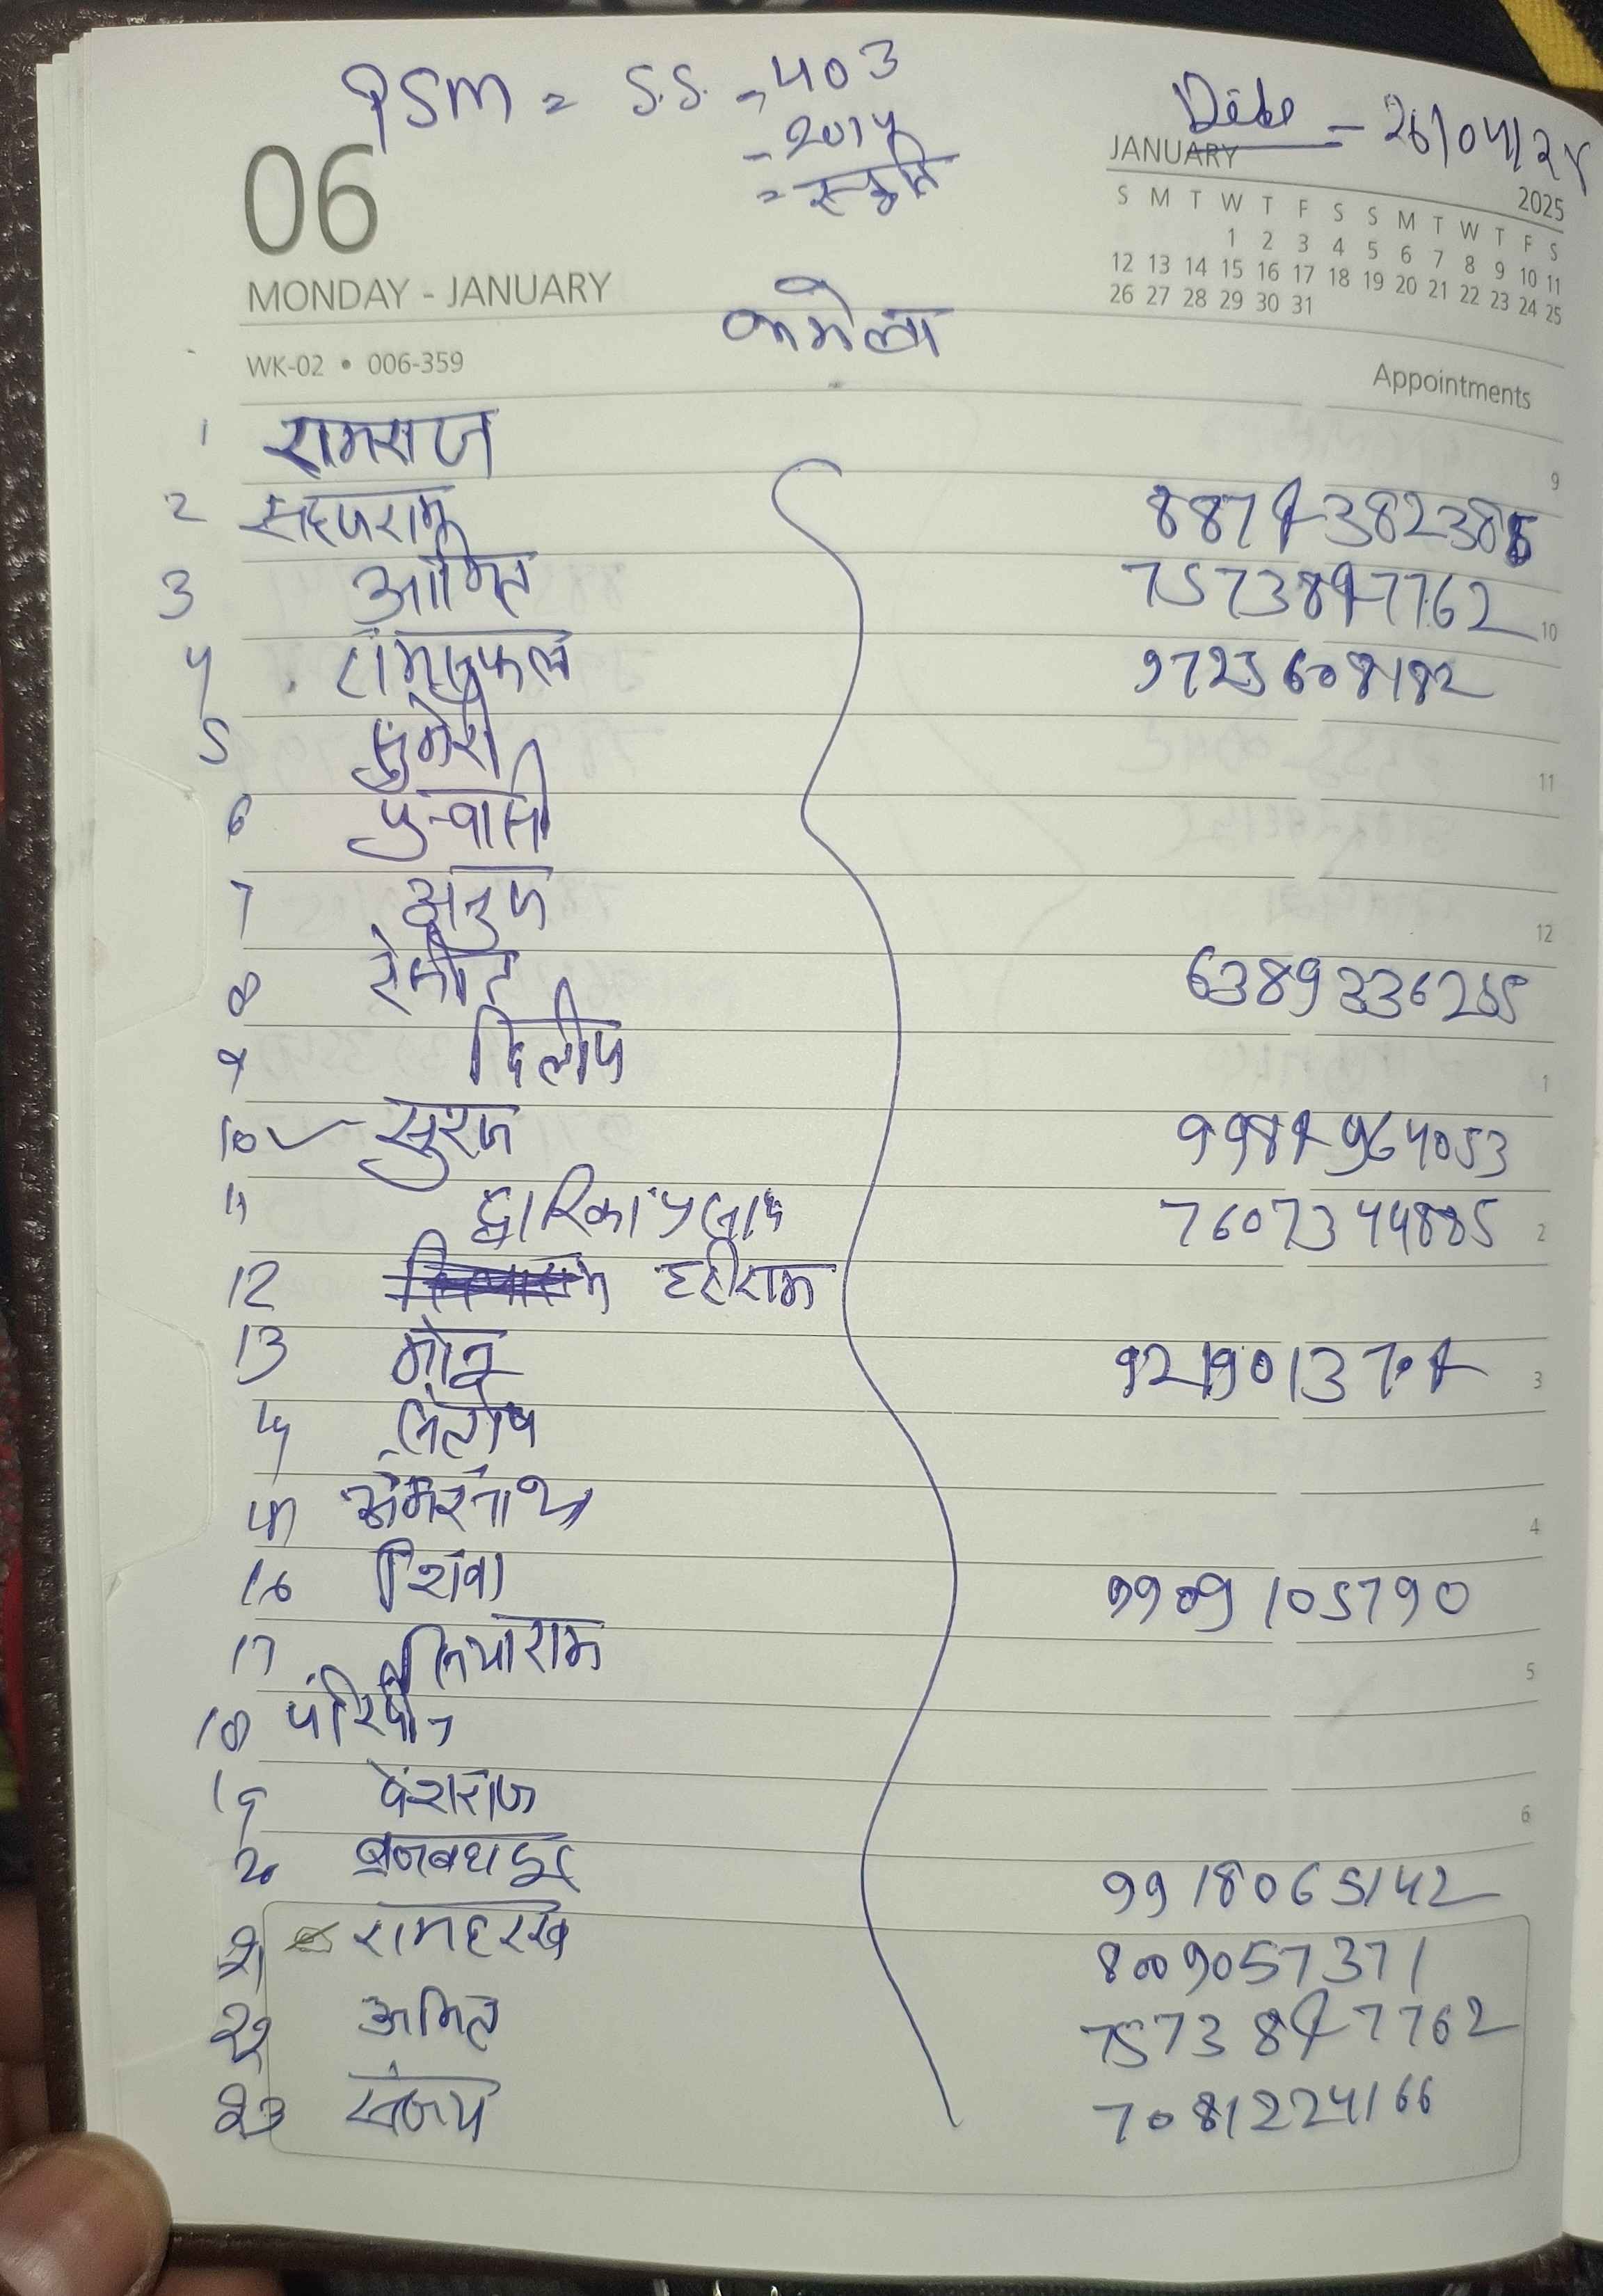 PSM = S.S. - 403
Date - 26/04/25
- 2014
06
JANUARY
2025
S M T W T F S S M T W T F S
1 2 3 4 5 6 7 8 9 10 11
12 13 14 15 16 17 18 19 20 21 22 23 24 25
26 27 28 29 30 31
MONDAY - JANUARY
कमेला
WK-02 • 006-359
Appointments
1 रामराज
9
2 सहजराम 887
3 अमित 7573897762
10
4 रामसुफल 9725608182
5 सुमेरी
11
6 पुन्वासी
7 अनुज
12
8 6389336265
9 दिलीप
1
10 सुरज 9989964053
11 द्वारिका प्रसाद 7607344885
2
12 हरीराम
13 मोनू
3
14 संतोष
15 अमरनाथ
4
16 शिवा 9909105790
17 सियाराम
5
18
19 देशराज
6
20 9918065142
21 रामहरख 8009057371
22 अमित 7573897762
23 संजय 7081224166